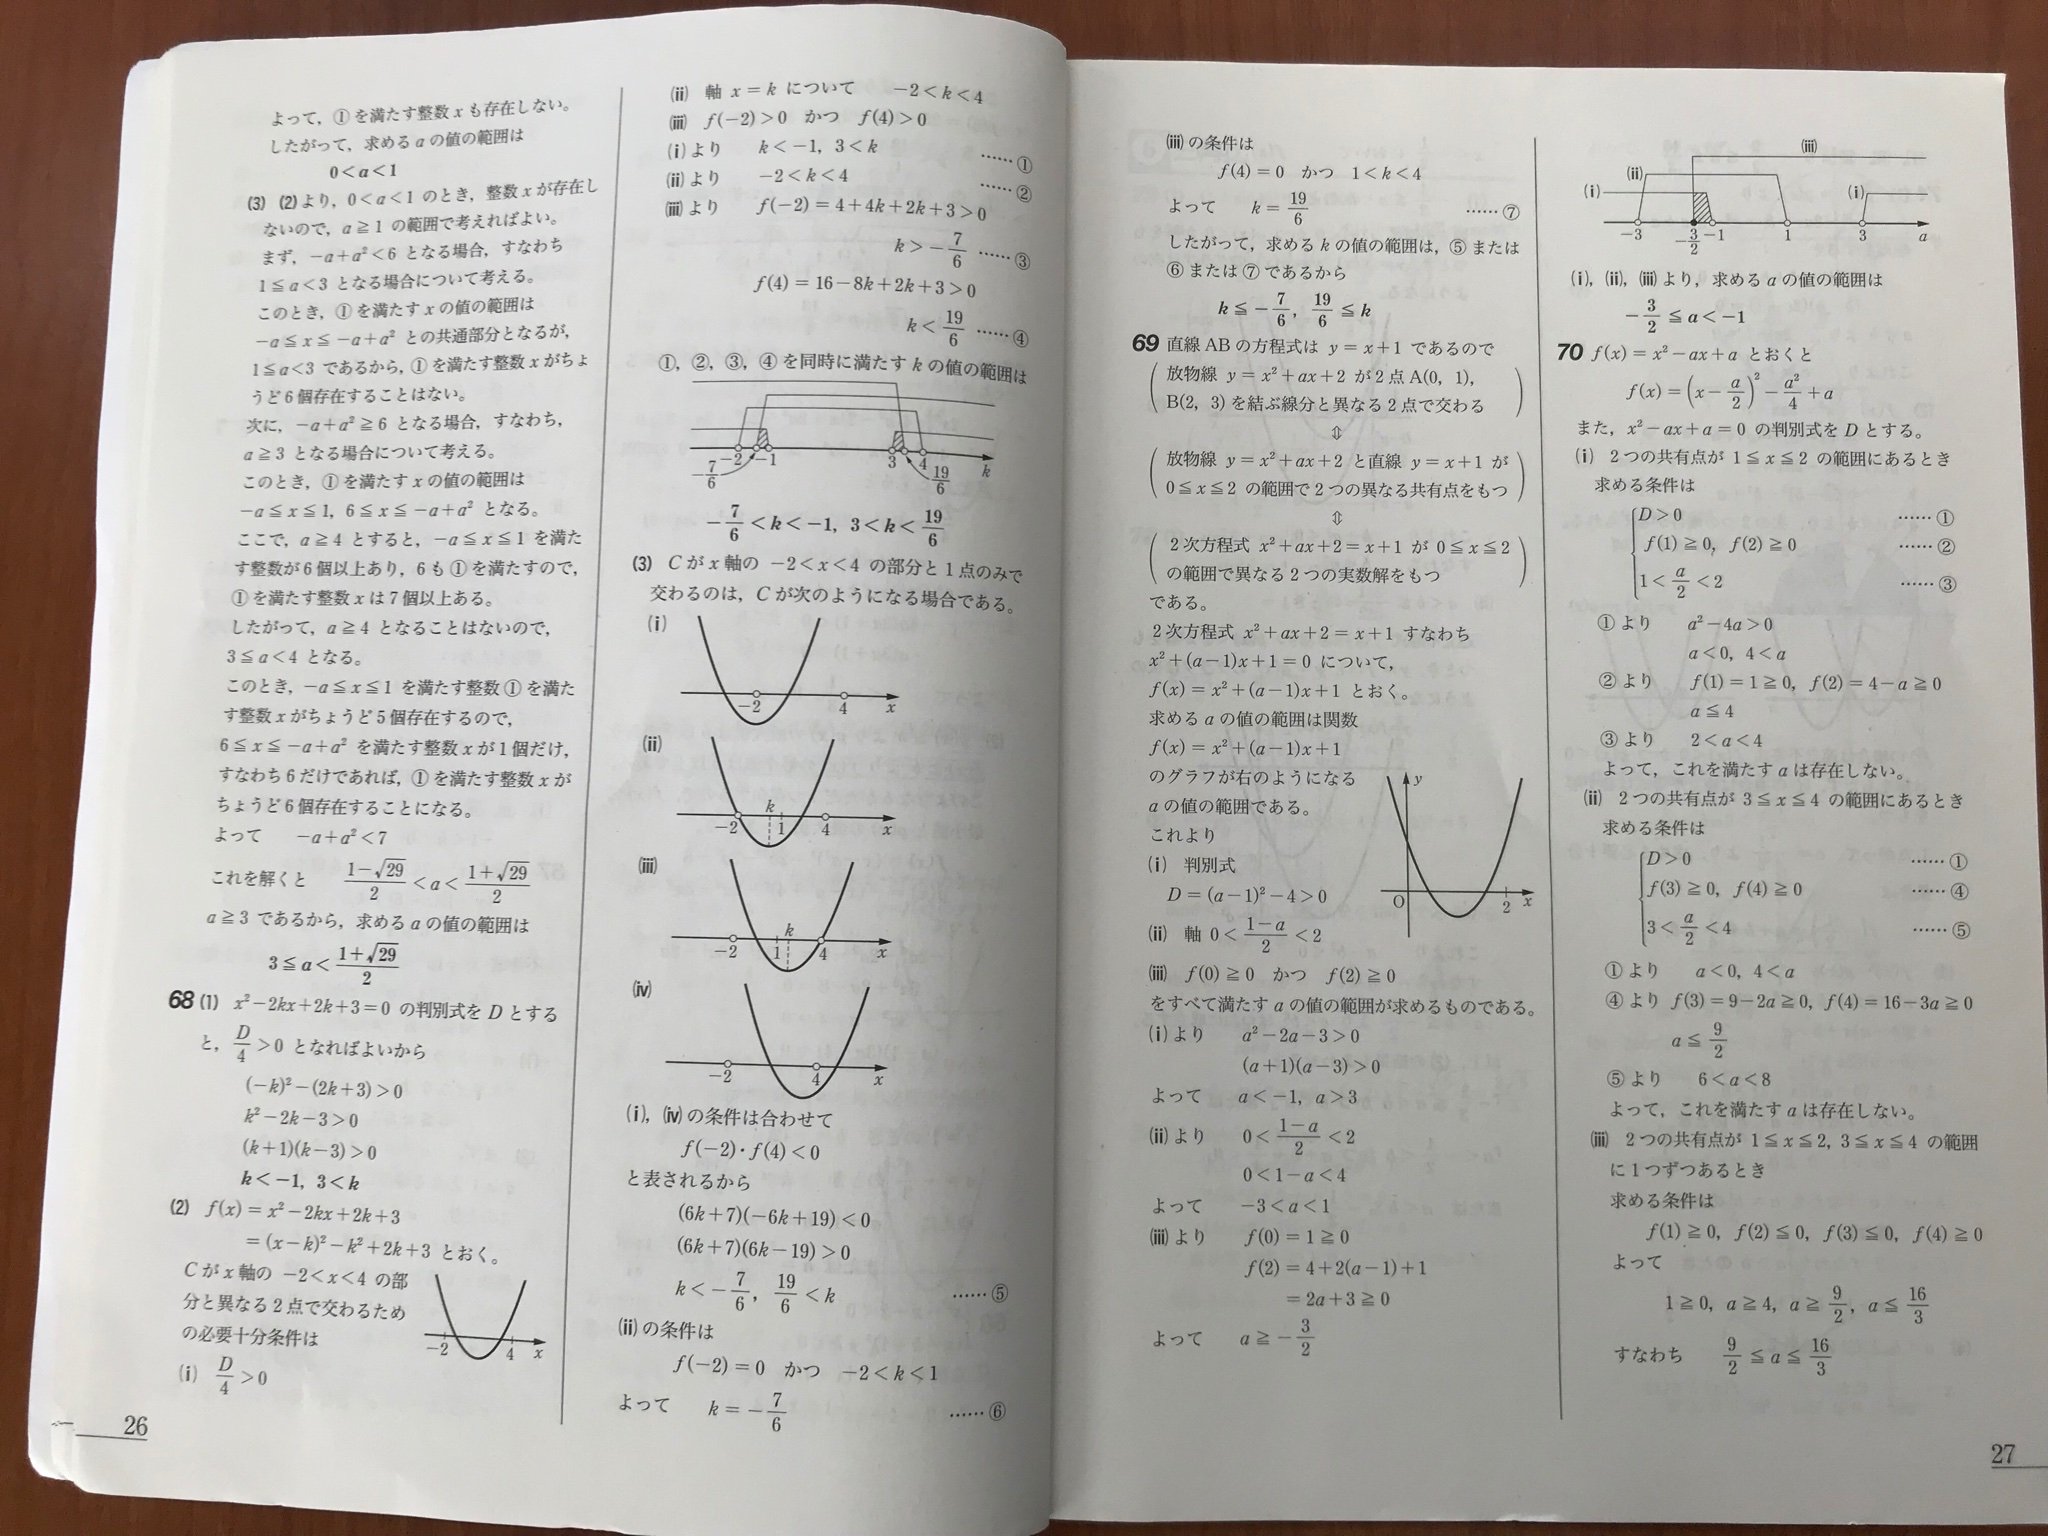 よって，①を満たす整数xも存在しない。
したがって，求めるaの値の範囲は
0<a<1
(3) (2)より，0<a<1 のとき，整数xが存在し
ないので，a≧1 の範囲で考えればよい。
まず，-a+a²<6 となる場合，すなわち
1≦a<3 となる場合について考える。
このとき，①を満たすxの値の範囲は
-a≦x≦-a+a² との共通部分となるが，
1≦a<3 であるから，①を満たす整数xがちょ
うど6個存在することはない。
次に，-a+a²≧6 となる場合，すなわち，
a≧3 となる場合について考える。
このとき，①を満たすxの値の範囲は
-a≦x≦1，6≦x≦-a+a² となる。
ここで，a≧4 とすると，-a≦x≦1 を満た
す整数が6個以上あり，6も①を満たすので，
①を満たす整数xは7個以上ある。
したがって，a≧4 となることはないので，
3≦a<4 となる。
このとき，-a≦x≦1 を満たす整数①を満た
す整数xがちょうど5個存在するので，
6≦x≦-a+a² を満たす整数xが1個だけ，
すなわち6だけであれば，①を満たす整数xが
ちょうど6個存在することになる。
よって -a+a²<7
これを解くと (1-√29)/2<a<(1+√29)/2
a≧3 であるから，求めるaの値の範囲は
3≦a<(1+√29)/2
68 (1) x²-2kx+2k+3=0 の判別式をDとする
と，D/4>0 となればよいから
(-k)²-(2k+3)>0
k²-2k-3>0
(k+1)(k-3)>0
k<-1，3<k
(2) f(x)=x²-2kx+2k+3
=(x-k)²-k²+2k+3 とおく。
Cがx軸の -2<x<4 の部
分と異なる2点で交わるため
の必要十分条件は
-2 4 x
(i) D/4>0
26
(ii) 軸 x=k について -2<k<4
(iii) f(-2)>0 かつ f(4)>0
(i)より k<-1，3<k ……①
(ii)より -2<k<4 ……②
(iii)より f(-2)=4+4k+2k+3>0
k>-7/6 ……③
f(4)=16-8k+2k+3>0
k<19/6 ……④
①，②，③，④を同時に満たすkの値の範囲は
-2 -1 3 4 k
-7/6 19/6
-7/6<k<-1，3<k<19/6
(3) Cがx軸の -2<x<4 の部分と1点のみで
交わるのは，Cが次のようになる場合である。
(i)
-2 4 x
(ii)
k
-2 1 4 x
(iii)
k
-2 1 4 x
(iv)
-2 4 x
(i)，(iv)の条件は合わせて
f(-2)・f(4)<0
と表されるから
(6k+7)(-6k+19)<0
(6k+7)(6k-19)>0
k<-7/6，19/6<k ……⑤
(ii)の条件は
f(-2)=0 かつ -2<k<1
よって k=-7/6 ……⑥
(iii)の条件は
f(4)=0 かつ 1<k<4
よって k=19/6 ……⑦
したがって，求めるkの値の範囲は，⑤または
⑥または⑦であるから
k≦-7/6，19/6≦k
69 直線ABの方程式は y=x+1 であるので
放物線 y=x²+ax+2 が2点A(0, 1)，
B(2, 3)を結ぶ線分と異なる2点で交わる
⇕
放物線 y=x²+ax+2 と直線 y=x+1 が
0≦x≦2 の範囲で2つの異なる共有点をもつ
⇕
2次方程式 x²+ax+2=x+1 が 0≦x≦2
の範囲で異なる2つの実数解をもつ
である。
2次方程式 x²+ax+2=x+1 すなわち
x²+(a-1)x+1=0 について，
f(x)=x²+(a-1)x+1 とおく。
求めるaの値の範囲は関数
f(x)=x²+(a-1)x+1
のグラフが右のようになる
aの値の範囲である。
これより
y
O 2 x
(i) 判別式
D=(a-1)²-4>0
(ii) 軸 0<(1-a)/2<2
(iii) f(0)≧0 かつ f(2)≧0
をすべて満たすaの値の範囲が求めるものである。
(i)より a²-2a-3>0
(a+1)(a-3)>0
よって a<-1，a>3
(ii)より 0<(1-a)/2<2
0<1-a<4
よって -3<a<1
(iii)より f(0)=1≧0
f(2)=4+2(a-1)+1
=2a+3≧0
よって a≧-3/2
(iii)
(ii)
(i) (i)
-3 -3/2 -1 1 3 a
(i)，(ii)，(iii)より，求めるaの値の範囲は
-3/2≦a<-1
70 f(x)=x²-ax+a とおくと
f(x)=(x-a/2)²-a²/4+a
また，x²-ax+a=0 の判別式をDとする。
(i) 2つの共有点が 1≦x≦2 の範囲にあるとき
求める条件は
D>0 ……①
f(1)≧0，f(2)≧0 ……②
1<a/2<2 ……③
①より a²-4a>0
a<0，4<a
②より f(1)=1≧0，f(2)=4-a≧0
a≦4
③より 2<a<4
よって，これを満たすaは存在しない。
(ii) 2つの共有点が 3≦x≦4 の範囲にあるとき
求める条件は
D>0 ……①
f(3)≧0，f(4)≧0 ……④
3<a/2<4 ……⑤
①より a<0，4<a
④より f(3)=9-2a≧0，f(4)=16-3a≧0
a≦9/2
⑤より 6<a<8
よって，これを満たすaは存在しない。
(iii) 2つの共有点が 1≦x≦2，3≦x≦4 の範囲
に1つずつあるとき
求める条件は
f(1)≧0，f(2)≦0，f(3)≦0，f(4)≧0
よって
1≧0，a≧4，a≧9/2，a≦16/3
すなわち 9/2≦a≦16/3
27